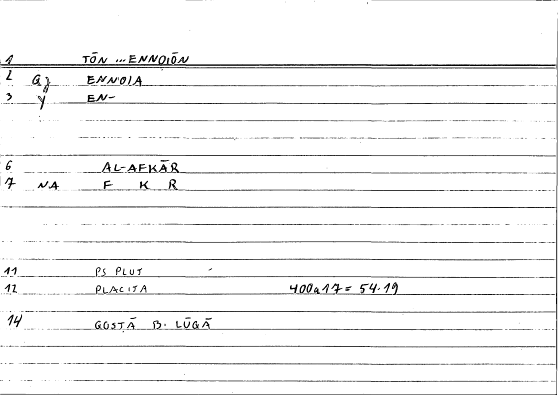 1 TŌN ... ENNOIŌN
2 Gj ENNOIA
3 y EN-
6 AL-AFKĀR
7 NA F K R
11 PS PLUT
12 PLACITA 400a17 = 54.19
14 QOSTĀ B. LŪQĀ